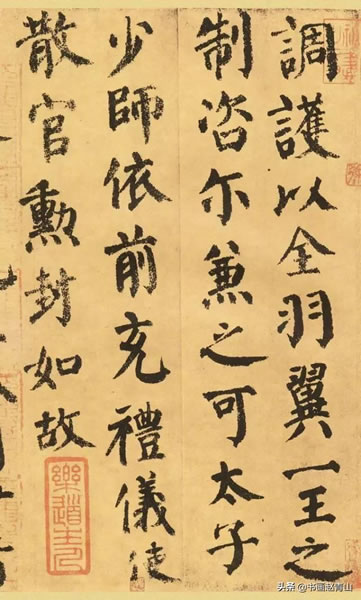 調護以全羽翼一王之
制咨尔兼之可太子
少師依前充禮儀使
散官勳封如故
头条 @书画赵青山